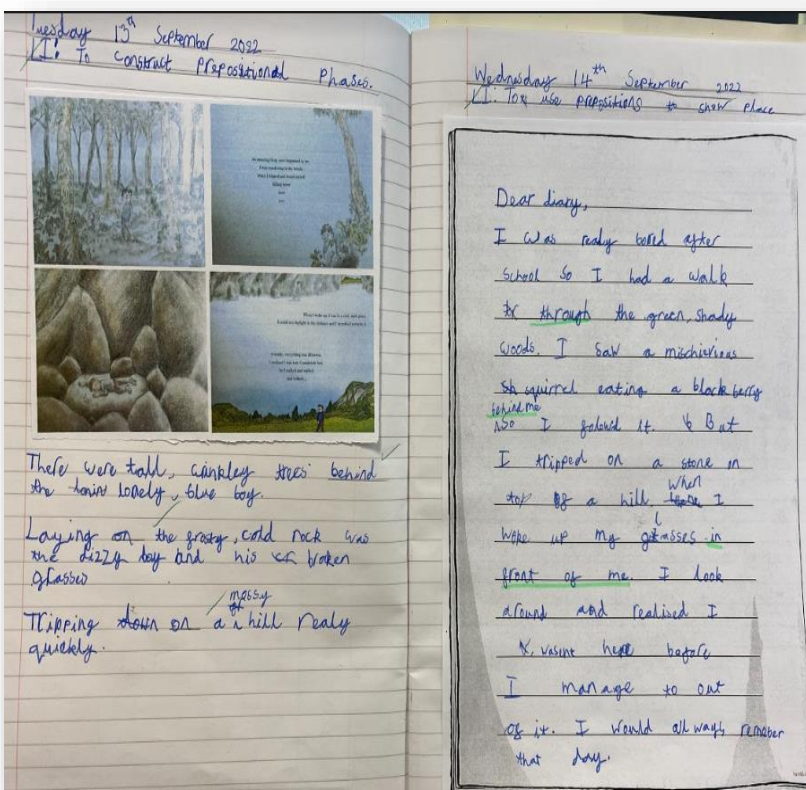 Tuesday 13th September 2022
LI: To construct prepositional phases.
There were tall, crinkley trees behind
the lonely, blue boy.
Laying on the frosty, cold rock was
the dizzy boy and his broken
glasses
Tripping down on a mossy hill realy
quickly.
Wednesday 14th September 2022
LI: To use prepositions to show place
Dear diary,
I was ready bored after
school so I had a walk
through the green, shady
woods. I saw a mischievious
squirrel eating a blackberry
behind me
So I folowd it. But
I tripped on a stone on
top of a hill. When I
woke up my glasses in
front of me. I look
around and realised I
wasint here before
I manage to out
of it. I would all ways remeber
that day.